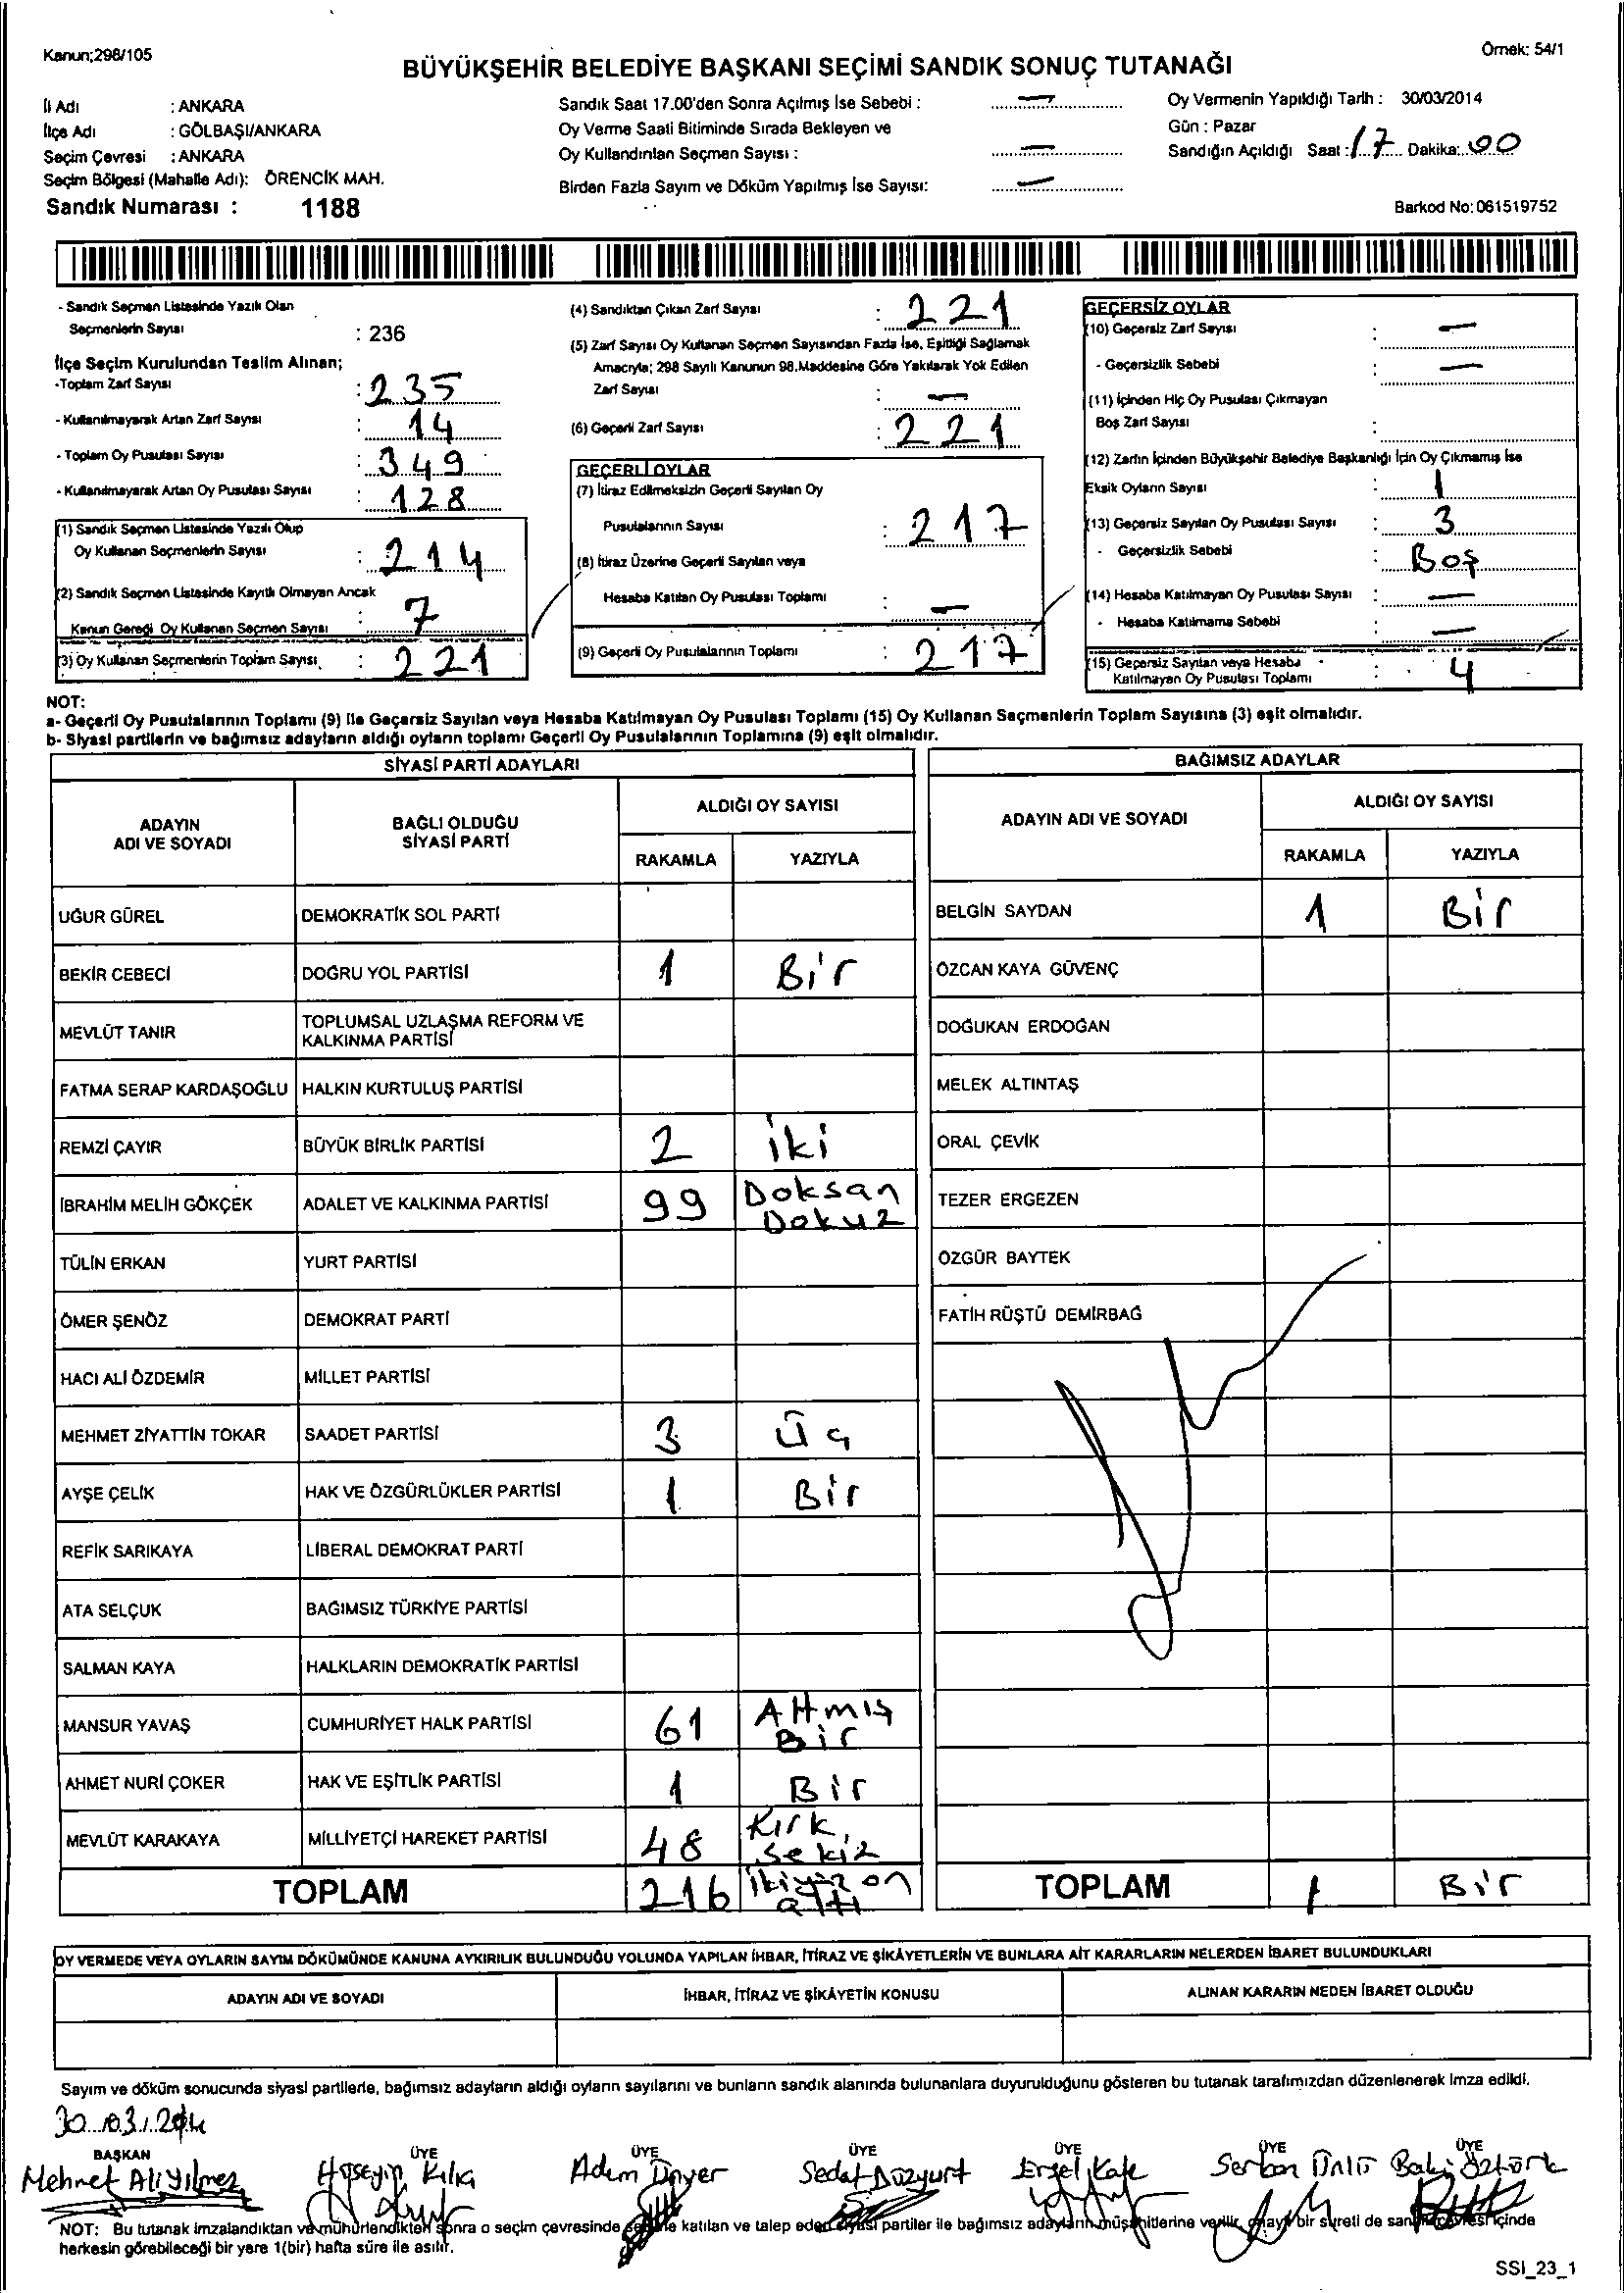 Kanun;298/105
Örnek: 54/1
BÜYÜKŞEHİR BELEDİYE BAŞKANI SEÇİMİ SANDIK SONUÇ TUTANAĞI
İl Adı : ANKARA
İlçe Adı : GÖLBAŞI/ANKARA
Seçim Çevresi : ANKARA
Seçim Bölgesi (Mahalle Adı): ÖRENCİK MAH.
Sandık Numarası : 1188
Sandık Saat 17.00'den Sonra Açılmış İse Sebebi : —
Oy Verme Saati Bitiminde Sırada Bekleyen ve
Oy Kullandırılan Seçmen Sayısı : —
Birden Fazla Sayım ve Döküm Yapılmış İse Sayısı: —
Oy Vermenin Yapıldığı Tarih : 30/03/2014
Gün : Pazar
Sandığın Açıldığı Saat : 17 Dakika: 00
Barkod No: 061519752
- Sandık Seçmen Listesinde Yazılı Olan
Seçmenlerin Sayısı : 236
İlçe Seçim Kurulundan Teslim Alınan;
-Toplam Zarf Sayısı : 235
- Kullanılmayarak Artan Zarf Sayısı : 14
- Toplam Oy Pusulası Sayısı : 349
- Kullanılmayarak Artan Oy Pusulası Sayısı : 128
(1) Sandık Seçmen Listesinde Yazılı Olup
Oy Kullanan Seçmenlerin Sayısı : 214
(2) Sandık Seçmen Listesinde Kayıtlı Olmayan Ancak
Kanun Gereği Oy Kullanan Seçmen Sayısı : 7
(3) Oy Kullanan Seçmenlerin Toplam Sayısı : 221
(4) Sandıktan Çıkan Zarf Sayısı : 221
(5) Zarf Sayısı Oy Kullanan Seçmen Sayısından Fazla İse, Eşitliği Sağlamak
Amacıyla; 298 Sayılı Kanunun 98.Maddesine Göre Yakılarak Yok Edilen
Zarf Sayısı : —
(6) Geçerli Zarf Sayısı : 221
GEÇERLİ OYLAR
(7) İtiraz Edilmeksizin Geçerli Sayılan Oy
Pusulalarının Sayısı : 217
(8) İtiraz Üzerine Geçerli Sayılan veya
Hesaba Katılan Oy Pusulası Toplamı : —
(9) Geçerli Oy Pusulalarının Toplamı : 217
GEÇERSİZ OYLAR
(10) Geçersiz Zarf Sayısı : —
- Geçersizlik Sebebi : —
(11) İçinden Hiç Oy Pusulası Çıkmayan
Boş Zarf Sayısı :
(12) Zarfın İçinden Büyükşehir Belediye Başkanlığı İçin Oy Çıkmamış İse
Eksik Oyların Sayısı : 1
(13) Geçersiz Sayılan Oy Pusulası Sayısı : 3
- Geçersizlik Sebebi : Boş
(14) Hesaba Katılmayan Oy Pusulası Sayısı : —
- Hesaba Katılmama Sebebi : —
(15) Geçersiz Sayılan veya Hesaba
Katılmayan Oy Pusulası Toplamı : 4
NOT:
a- Geçerli Oy Pusulalarının Toplamı (9) İle Geçersiz Sayılan veya Hesaba Katılmayan Oy Pusulası Toplamı (15) Oy Kullanan Seçmenlerin Toplam Sayısına (3) eşit olmalıdır.
b- Siyasi partilerin ve bağımsız adayların aldığı oyların toplamı Geçerli Oy Pusulalarının Toplamına (9) eşit olmalıdır.
SİYASİ PARTİ ADAYLARI
ADAYIN ADI VE SOYADI
BAĞLI OLDUĞU SİYASİ PARTİ
ALDIĞI OY SAYISI
RAKAMLA YAZIYLA
UĞUR GÜREL DEMOKRATİK SOL PARTİ
BEKİR CEBECİ DOĞRU YOL PARTİSİ 1 Bir
MEVLÜT TANIR TOPLUMSAL UZLAŞMA REFORM VE KALKINMA PARTİSİ
FATMA SERAP KARDAŞOĞLU HALKIN KURTULUŞ PARTİSİ
REMZİ ÇAYIR BÜYÜK BİRLİK PARTİSİ 2 iki
İBRAHİM MELİH GÖKÇEK ADALET VE KALKINMA PARTİSİ 99 Doksan Dokuz
TÜLİN ERKAN YURT PARTİSİ
ÖMER ŞENÖZ DEMOKRAT PARTİ
HACI ALİ ÖZDEMİR MİLLET PARTİSİ
MEHMET ZİYATTİN TOKAR SAADET PARTİSİ 3 Üç
AYŞE ÇELİK HAK VE ÖZGÜRLÜKLER PARTİSİ 1 Bir
REFİK SARIKAYA LİBERAL DEMOKRAT PARTİ
ATA SELÇUK BAĞIMSIZ TÜRKİYE PARTİSİ
SALMAN KAYA HALKLARIN DEMOKRATİK PARTİSİ
MANSUR YAVAŞ CUMHURİYET HALK PARTİSİ 61 Altmış Bir
AHMET NURİ ÇOKER HAK VE EŞİTLİK PARTİSİ 1 Bir
MEVLÜT KARAKAYA MİLLİYETÇİ HAREKET PARTİSİ 48 Kırk Sekiz
TOPLAM 216 ikiyüz on altı
BAĞIMSIZ ADAYLAR
ADAYIN ADI VE SOYADI
ALDIĞI OY SAYISI
RAKAMLA YAZIYLA
BELGİN SAYDAN 1 Bir
ÖZCAN KAYA GÜVENÇ
DOĞUKAN ERDOĞAN
MELEK ALTINTAŞ
ORAL ÇEVİK
TEZER ERGEZEN
ÖZGÜR BAYTEK
FATİH RÜŞTÜ DEMİRBAĞ
TOPLAM 1 Bir
OY VERMEDE VEYA OYLARIN SAYIM DÖKÜMÜNDE KANUNA AYKIRILIK BULUNDUĞU YOLUNDA YAPILAN İHBAR, İTİRAZ VE ŞİKÂYETLERİN VE BUNLARA AİT KARARLARIN NELERDEN İBARET BULUNDUKLARI
ADAYIN ADI VE SOYADI
İHBAR, İTİRAZ VE ŞİKÂYETİN KONUSU
ALINAN KARARIN NEDEN İBARET OLDUĞU
Sayım ve döküm sonucunda siyasi partilerle, bağımsız adayların aldığı oyların sayılarını ve bunların sandık alanında bulunanlara duyurulduğunu gösteren bu tutanak tarafımızdan düzenlenerek imza edildi.
30.03.2014
BAŞKAN ÜYE ÜYE ÜYE ÜYE ÜYE ÜYE
Mehmet Ali Yılmaz Hüseyin Kılıç Adem Sedat Düzyurt Serkan Ünlü Baki Öztürk
NOT: Bu tutanak imzalandıktan ve mühürlendikten sonra o seçim çevresinde seçime katılan ve talep eden siyasi partiler ile bağımsız adayların müşahitlerine verilir, onaylı bir sureti de sandık çevresi içinde
herkesin görebileceği bir yere 1(bir) hafta süre ile asılır.
SSI_23_1